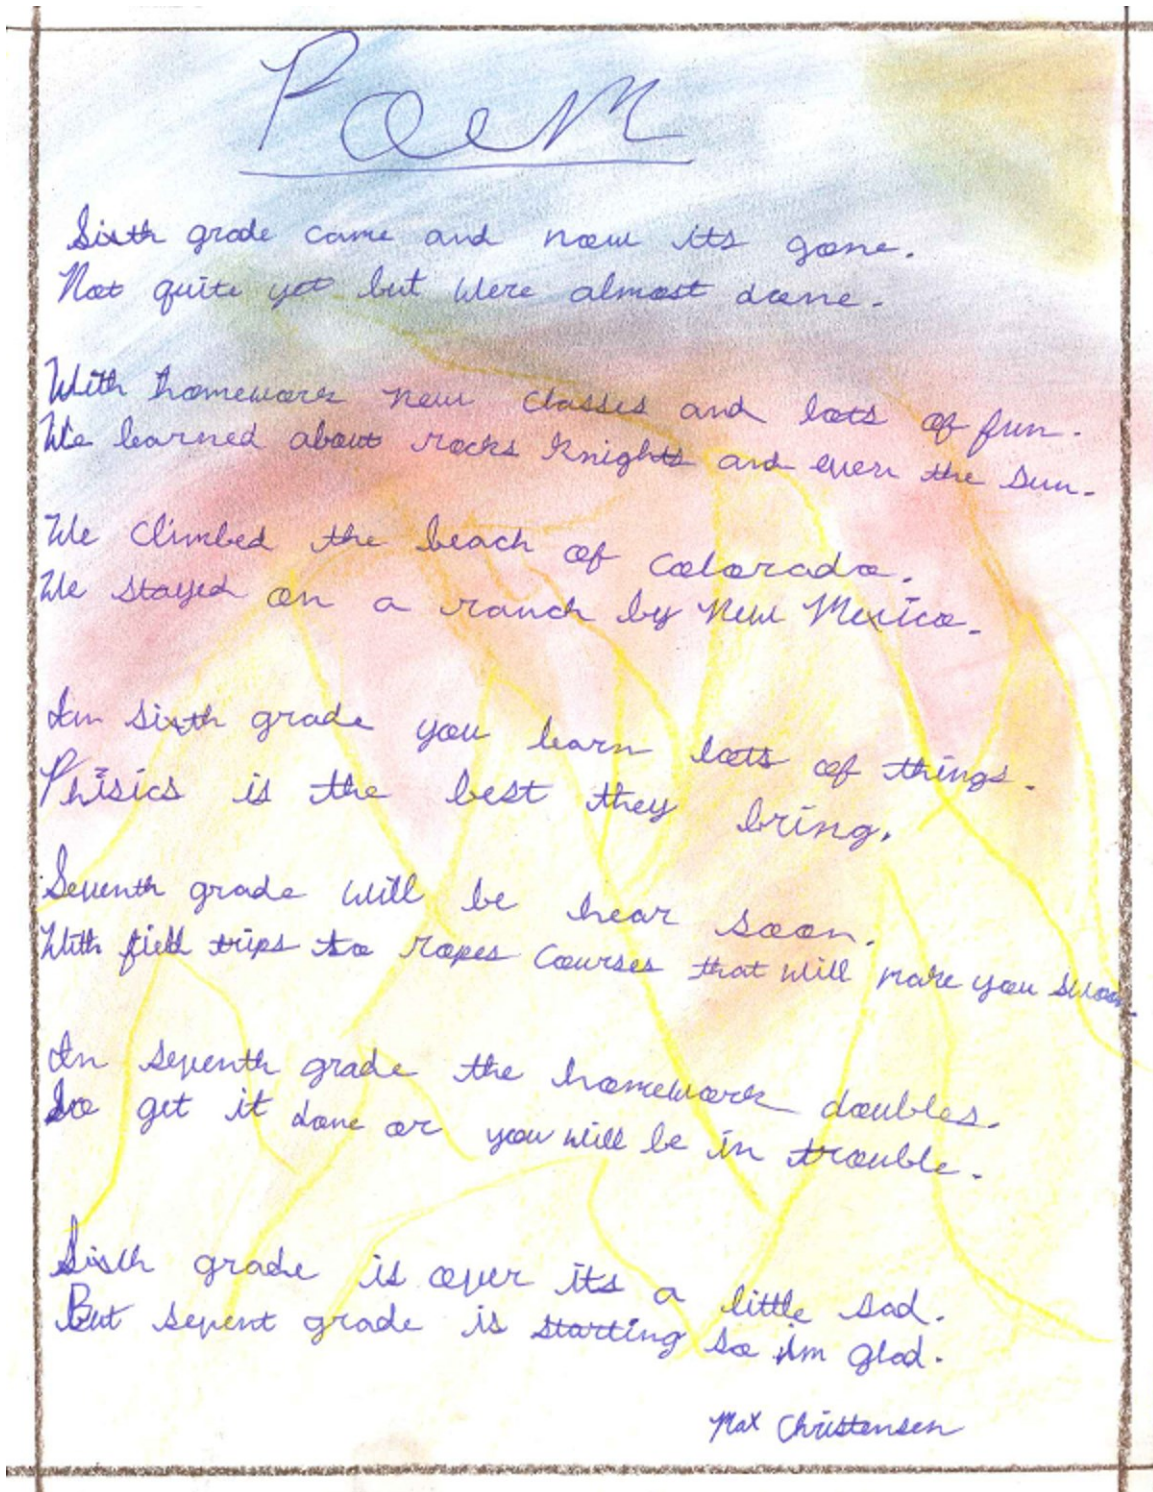 Poem
Sixth grade came and now its gone.
Not quite yet but were almost done.
With homework new classes and lots of fun.
We learned about rocks Knights and even the sun.
We climbed the beach of colorado.
We stayed on a ranch by New Mexico.
In sixth grade you learn lots of things.
Phisics is the best they bring.
Seventh grade will be hear soon.
With field trips to ropes courses that will make you swoon.
In seventh grade the homework doubles.
So get it done or you will be in trouble.
Sixth grade is over its a little sad.
But sevent grade is starting so im glad.
Max Christensen